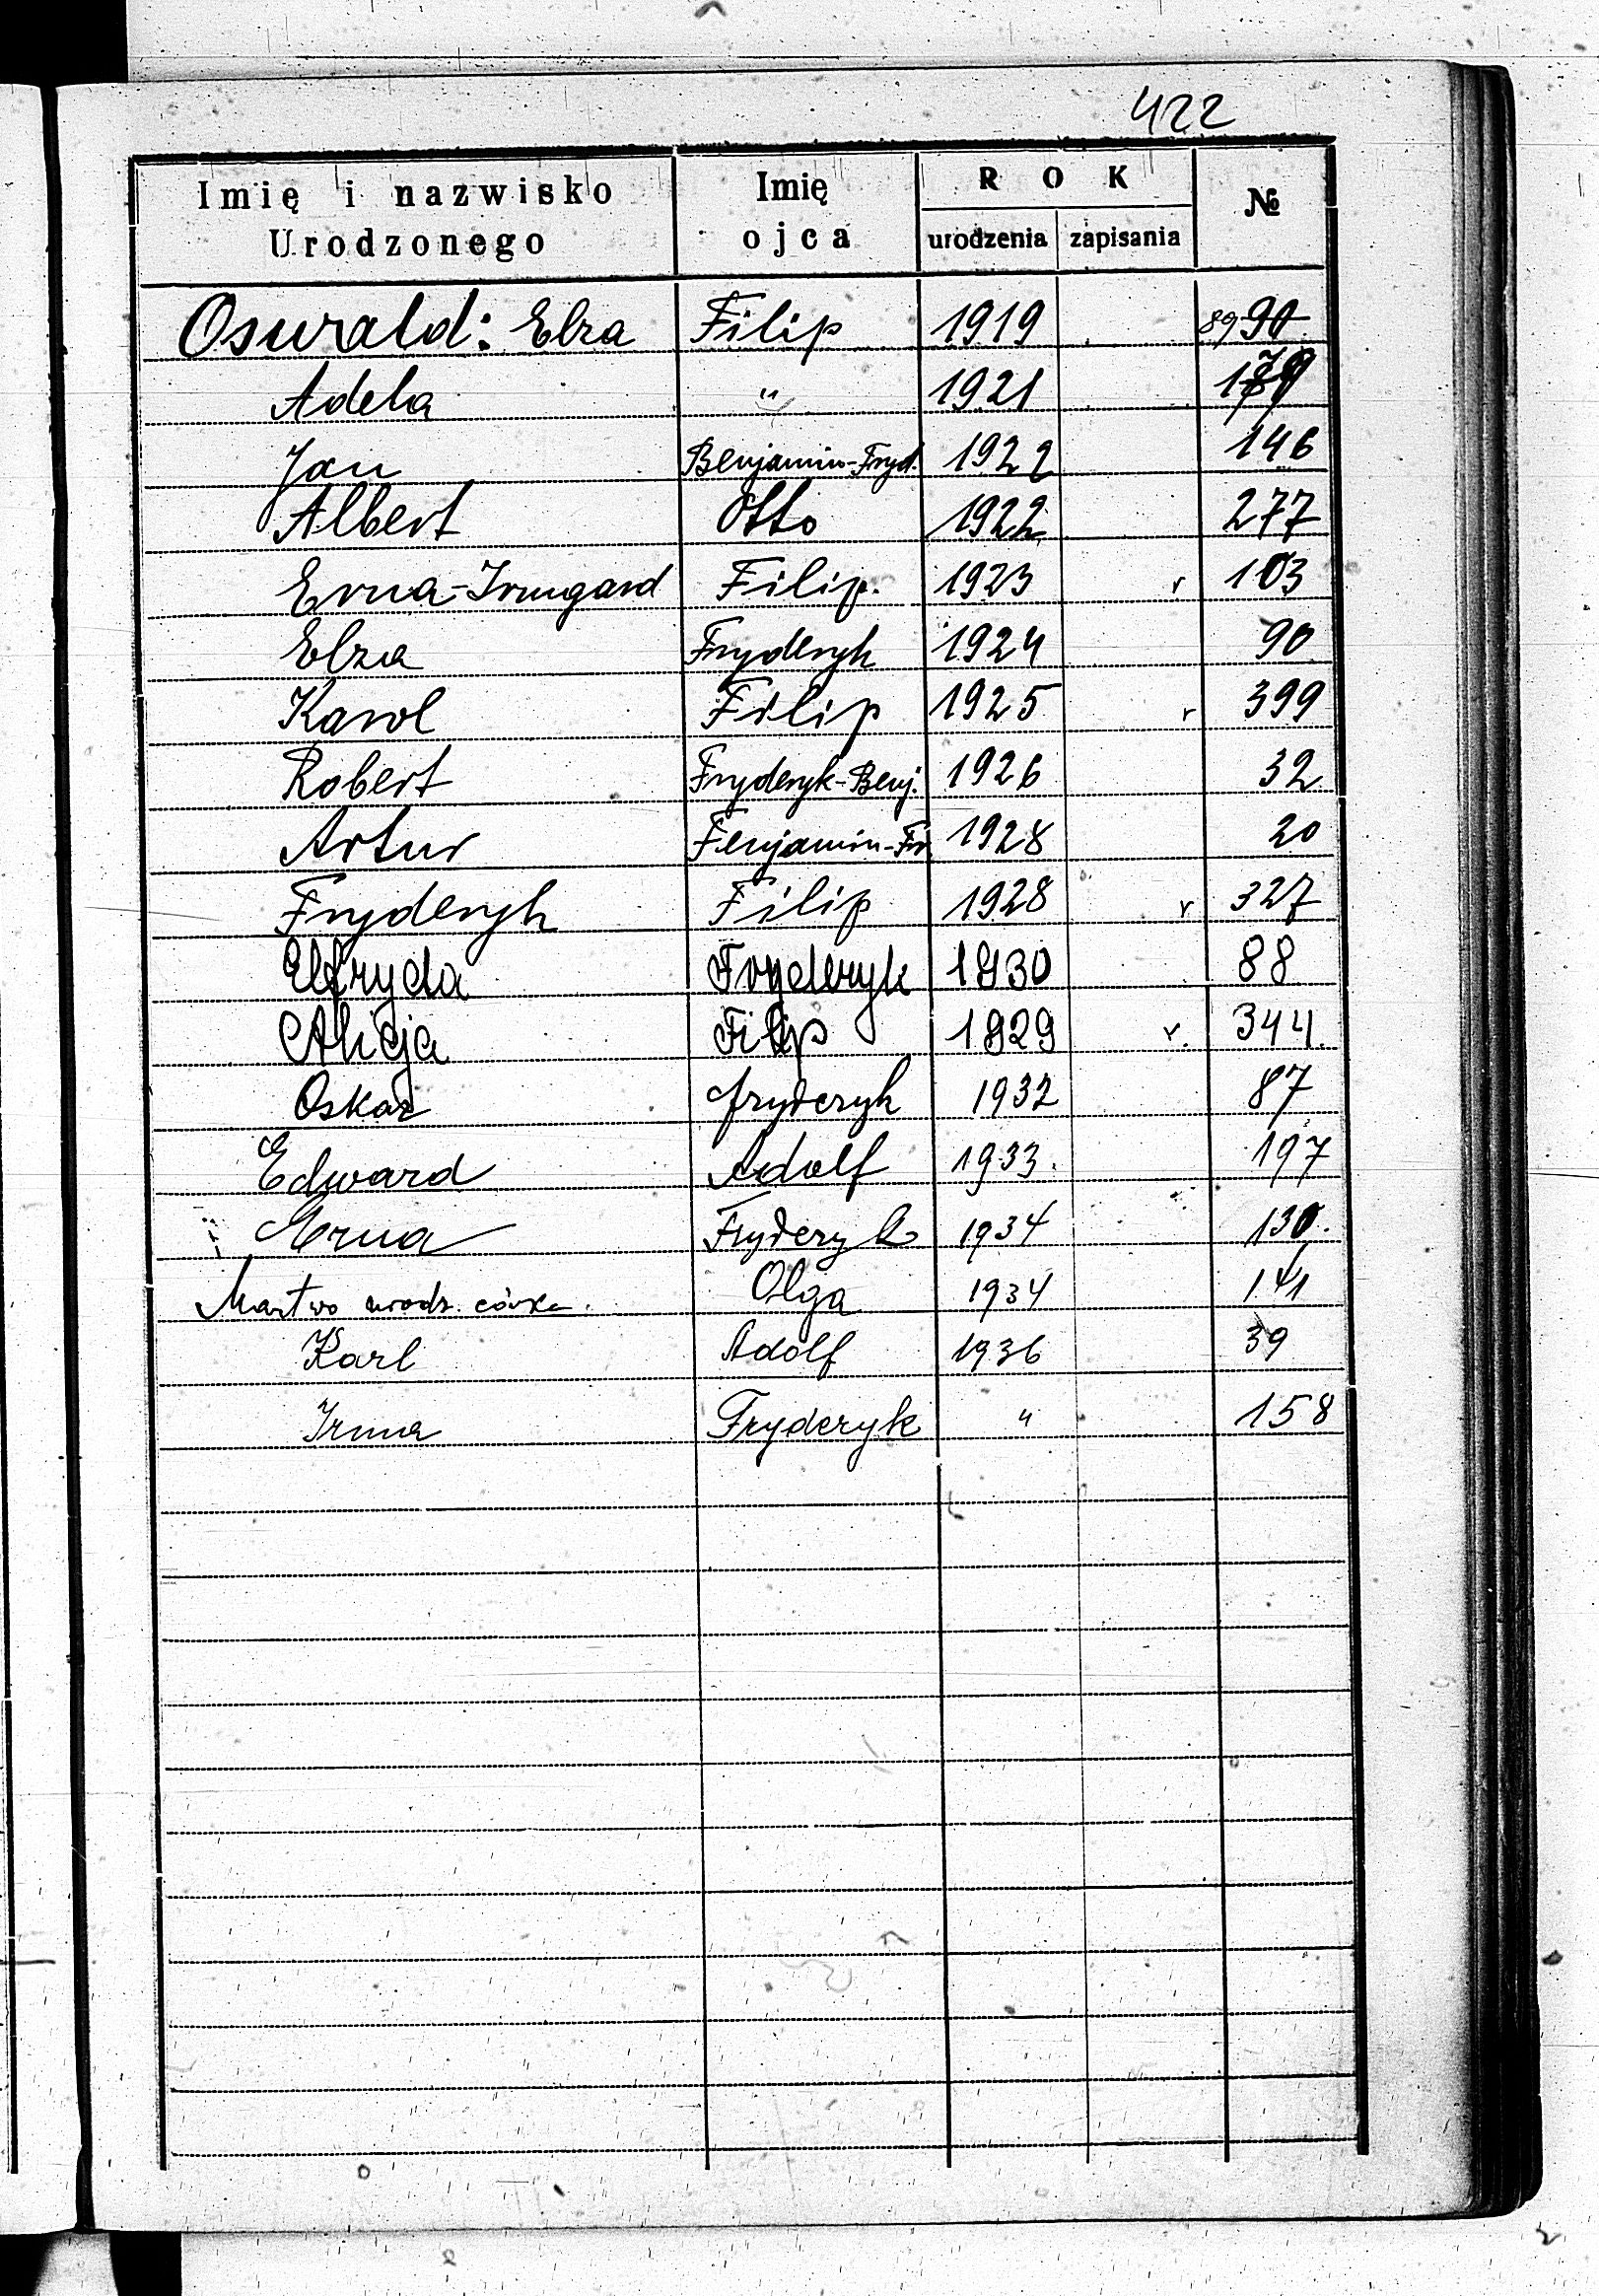 422
Imię i nazwisko Urodzonego Imię ojca ROK urodzenia zapisania №
Oswald: Elza Filip 1919 89 90
Adela " 1921 179
Jan Benjamin-Fryd. 1922 146
Albert Otto 1922 277
Erna-Irmgard Filip. 1923 r 103
Elza Fryderyk 1924 90
Karol Filip 1925 r 399
Robert Fryderyk-Benj. 1926 32
Artur Fenjamin-Fr. 1928 20
Fryderyk Filip 1928 r 327
Elfryda Fryderyk 1930 88
Alicja Filip 1929 r. 344
Oskar Fryderyk 1932 87
Edward Adolf 1933. 197
Erna Fryderyk 1934 130.
Martwo urodz. córka. Olga 1934 141
Karl Adolf 1936 39
Irma Fryderyk " 158